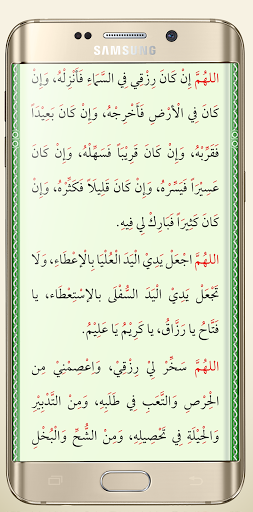 SAMSUNG
اللهُمَّ إِنْ كَانَ رِزْقِي فِي السَّمَاءِ فَأَنْزِلْهُ، وَإِنْ
كَانَ فِي الْأَرْضِ فَأَخْرِجْهُ، وَإِنْ كَانَ بَعِيْدَاً
فَقَرِّبْهُ، وَإِنْ كَانَ قَرِيْبَاً فَسَهِّلْهُ، وَإِنْ كَانَ
عَسِيْرَاً فَيَسِّرْهُ، وَإِنْ كَانَ قَلِيْلَاً فَكَثِّرْهُ، وَإِنْ
كَانَ كَثِيْرَاً فَبَارِكْ لِي فِيهِ.
اللهُمَّ اجْعَلْ يَدِيْ الْيَدَ الْعُلْيَا بِالْإِعْطَاءِ، وَلَا
تَجْعَلْ يَدِيْ الْيَدَ السُّفْلَى بالاِسْتِعْطَاء، يا
فَتَّاحُ يا رَزَّاقُ، يا كَرِيْمُ يَا عَلِيْمُ.
اللهُمَّ سَخِّرْ لِيْ رِزْقِيْ، وَاِعْصِمْنِيْ مِنَ
الْحِرْصِ وَالتَّعَبِ فِي طَلَبِهِ، وَمِنَ التَّدْبِيْرِ
وَالْحِيْلَةِ فِيْ تَحْصِيلِهِ، وَمِنَ الشُّحِّ وَالْبُخْلِ